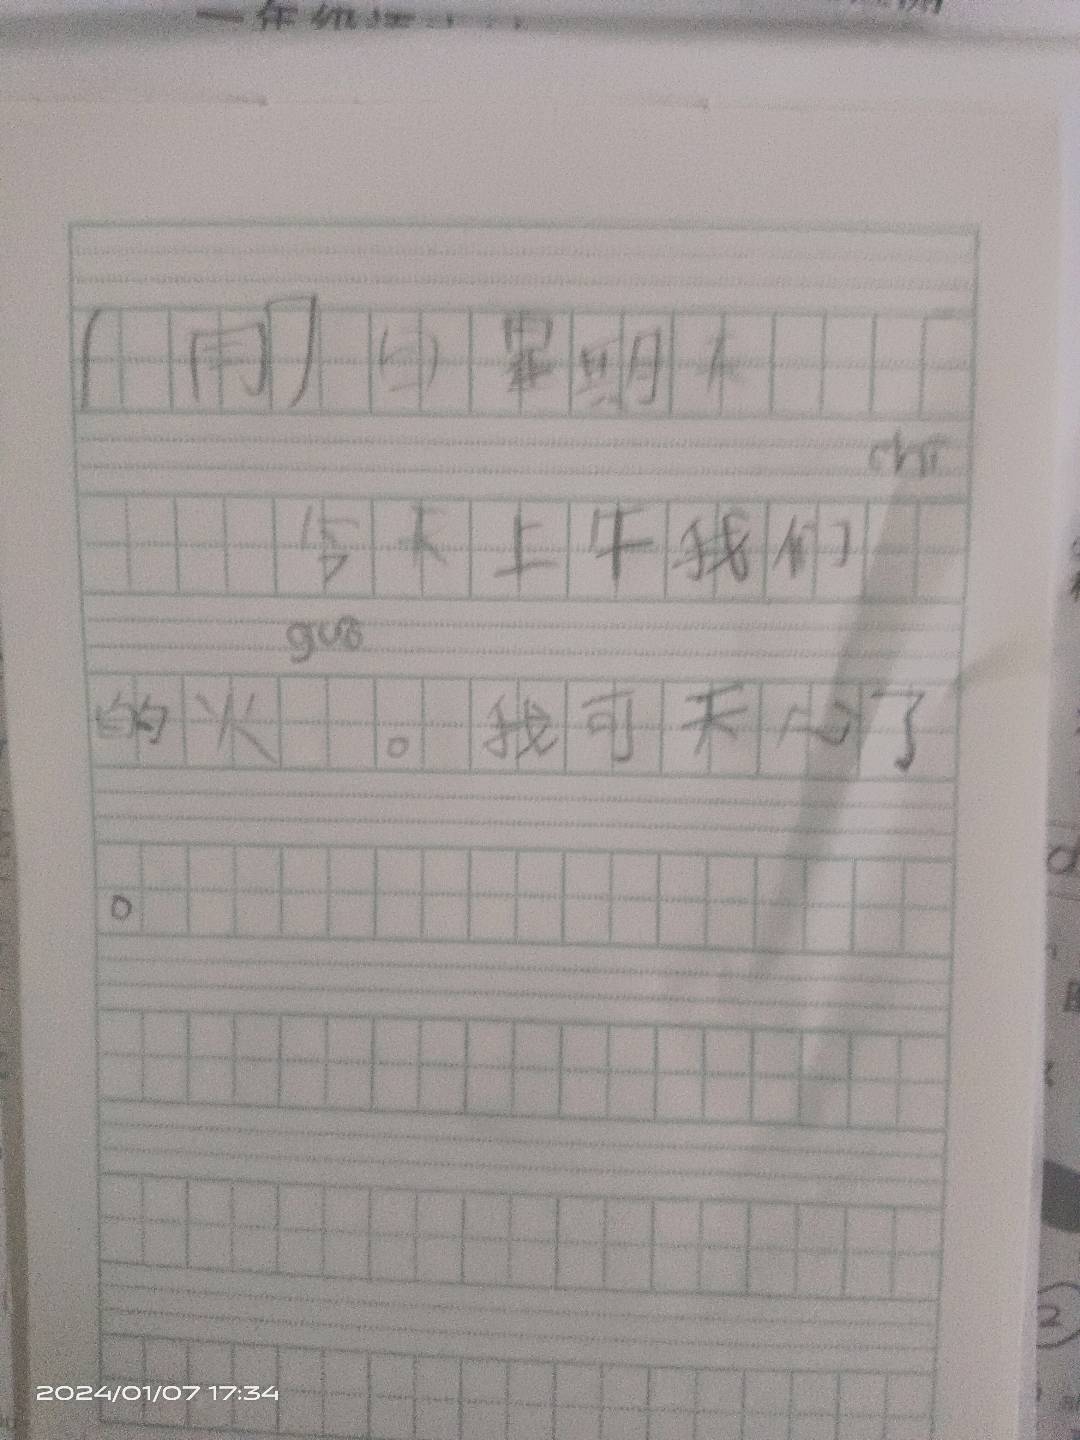 周日 星期天
chī
今天上午我们
guō
的火 。我可天心了
。
2024/01/07 17:34